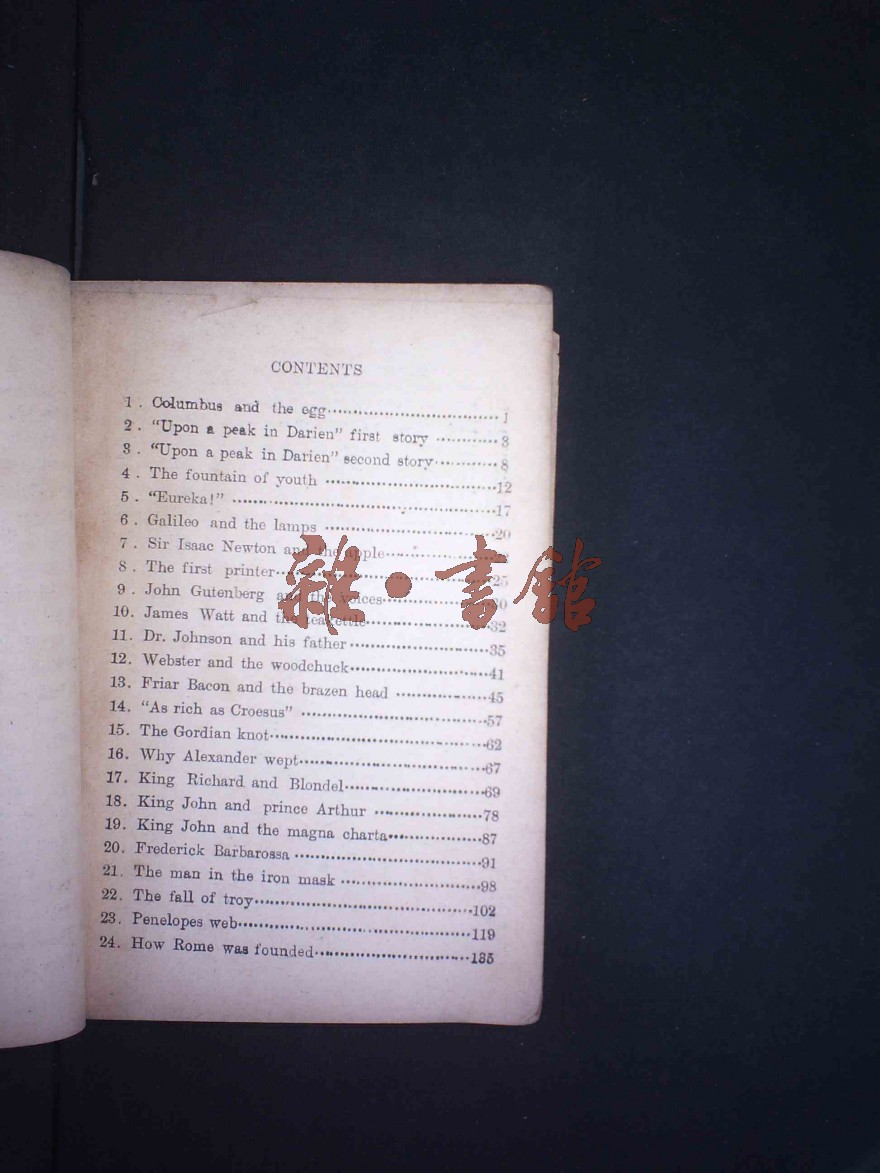 CONTENTS
1. Columbus and the egg 1
2. “Upon a peak in Darien” first story 3
3. “Upon a peak in Darien” second story 8
4. The fountain of youth 12
5. “Eureka!” 17
6. Galileo and the lamps 20
7. Sir Isaac Newton and the apple
8. The first printer 25
9. John Gutenberg and the voices 30
10. James Watt and the teakettle 32
11. Dr. Johnson and his father 35
12. Webster and the woodchuck 41
13. Friar Bacon and the brazen head 45
14. “As rich as Croesus” 57
15. The Gordian knot 62
16. Why Alexander wept 67
17. King Richard and Blondel 69
18. King John and prince Arthur 78
19. King John and the magna charta 87
20. Frederick Barbarossa 91
21. The man in the iron mask 98
22. The fall of troy 102
23. Penelopes web 119
24. How Rome was founded 135
雜·書館